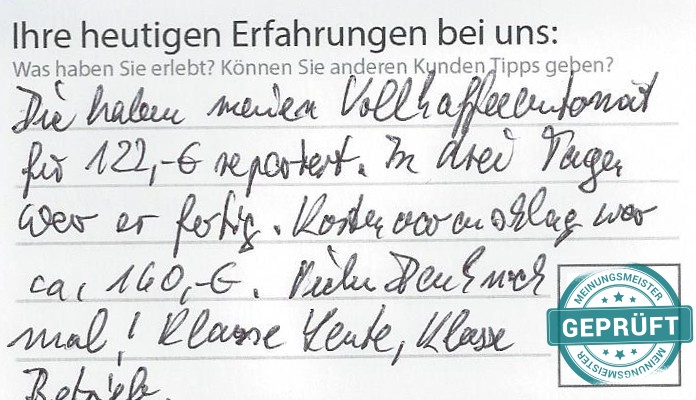 Ihre heutigen Erfahrungen bei uns:
Was haben Sie erlebt? Können Sie anderen Kunden Tipps geben?
Die haben meinen Vollkaffeeautomat
für 122,-€ repariert. In drei Tagen
war er fertig. Kostenvoranschlag war
ca. 160,-€. Vielen Dank noch
mal! Klasse Leute, Klasse
Betrieb.
MEINUNGSMEISTER
GEPRÜFT
MEINUNGSMEISTER